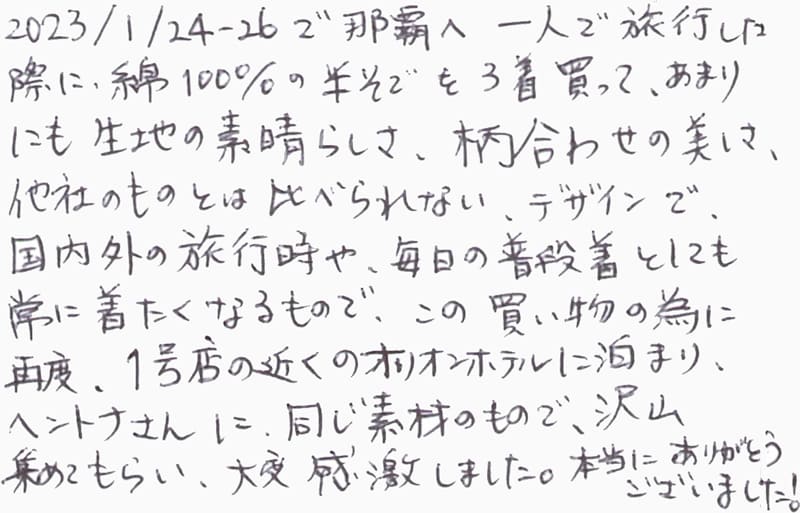 2023/1/24-26で那覇へ 一人で旅行した
際に、綿100%の半そでを3着買って、あまり
にも生地の素晴らしさ、柄合わせの美しさ、
他社のものとは比べられない、デザインで、
国内外の旅行時や、毎日の普段着としても
常に着たくなるもので、この買い物の為に
再度、1号店の近くのオリオンホテルに泊まり、
ヘントナさんに、同じ素材のもので、沢山
集めてもらい、大変感激しました。本当にありがとう
ございました!